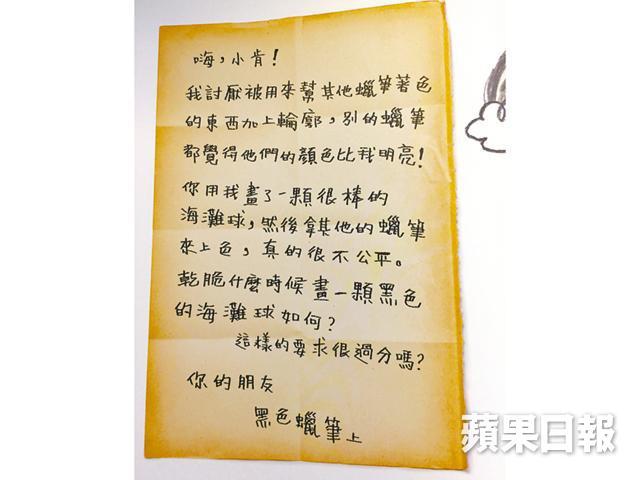 嗨，小肯！
我討厭被用來幫其他蠟筆著色
的東西加上輪廓，別的蠟筆
都覺得他們的顏色比我明亮！
你用我畫了一顆很棒的
海灘球，然後拿其他的蠟筆
來上色，真的很不公平。
乾脆什麼時候畫一顆黑色
的海灘球如何？
這樣的要求很過分嗎？
你的朋友
黑色蠟筆上
蘋果日報